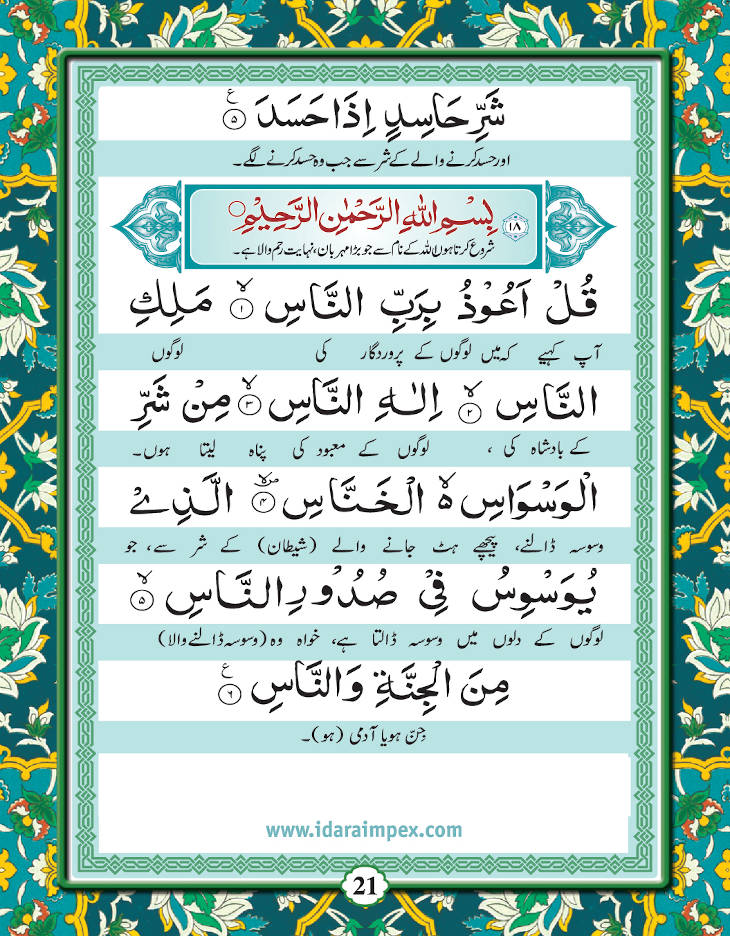 شَرِّ حَاسِدٍ اِذَا حَسَدَ ۝۵ ع
اور حسد کرنے والے کے شر سے جب وہ حسد کرنے لگے۔
بِسْمِ اللّٰهِ الرَّحْمٰنِ الرَّحِيْمِ ۝ ۱۸
شروع کرتا ہوں اللہ کے نام سے جو بڑا مہربان، نہایت رحم والا ہے۔
قُلْ اَعُوْذُ بِرَبِّ النَّاسِ ۙ۝۱ مَلِكِ
آپ کہیے کہ میں لوگوں کے پروردگار کی لوگوں
النَّاسِ ۙ۝۲ اِلٰهِ النَّاسِ ۙ۝۳ مِنْ شَرِّ
کے بادشاہ کی ، لوگوں کے معبود کی پناہ لیتا ہوں۔
الْوَسْوَاسِ ۙ۬ الْخَنَّاسِ ۝۴ الَّذِيْ
وسوسہ ڈالنے، پیچھے ہٹ جانے والے (شیطان) کے شر سے، جو
يُوَسْوِسُ فِيْ صُدُوْرِ النَّاسِ ۙ۝۵
لوگوں کے دلوں میں وسوسہ ڈالتا ہے، خواہ وہ (وسوسہ ڈالنے والا)
مِنَ الْجِنَّةِ وَالنَّاسِ ۝۶ ع
جِنّ ہو یا آدمی (ہو)۔
www.idaraimpex.com
21